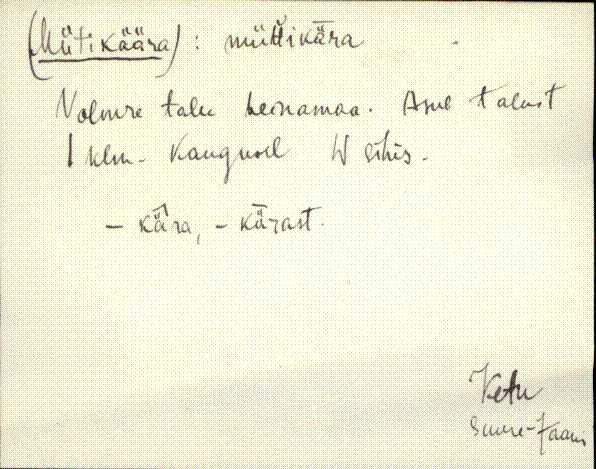 (Mütikäära) : müt̆tikǟra
Volmre talu heinamaa. Asub talust
1 klm. kaugusel W sihis.
– kä̂ra, – kǟrast.
Vetu
Suure-Jaani